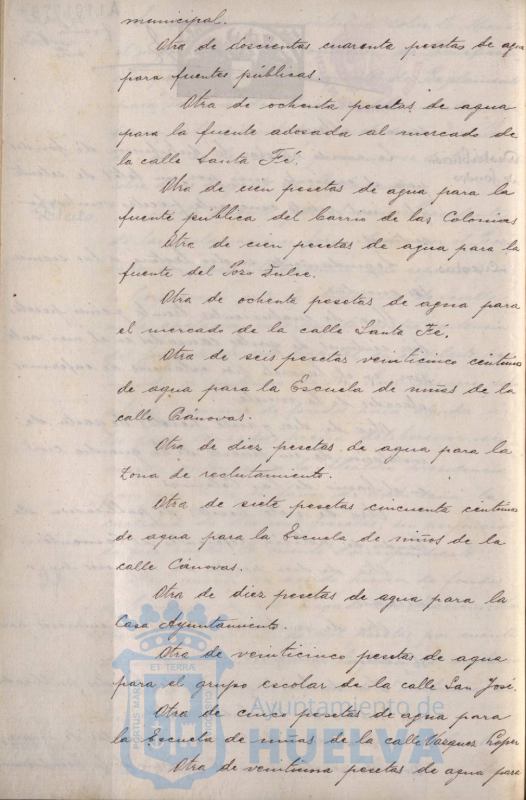 municipal.
Otra de doscientas cuarenta pesetas de agua
para fuentes públicas.
Otra de ochenta pesetas de agua
para la fuente adosada al mercado de
la calle Santa Fé.
Otra de cien pesetas de agua para la
fuente pública del barrio de las Colonias
Otra de cien pesetas de agua para la
fuente del Pozo Dulce.
Otra de ochenta pesetas de agua para
el mercado de la calle Santa Fé.
Otra de seis pesetas veinticinco céntimos
de agua para la Escuela de niñas de la
calle Cánovas.
Otra de diez pesetas de agua para la
Zona de reclutamiento.
Otra de siete pesetas cincuenta céntimos
de agua para la Escuela de niños de la
calle Cánovas.
Otra de diez pesetas de agua para la
Casa Ayuntamiento.
Otra de veinticinco pesetas de agua
para el grupo escolar de la calle San José.
Otra de cinco pesetas de agua para
la Escuela de niñas de la calle Vasquez Lopez
Otra de veintiuna pesetas de agua para
ET TERRAE
PORTUS MARIS
Ayuntamiento de
HUELVA